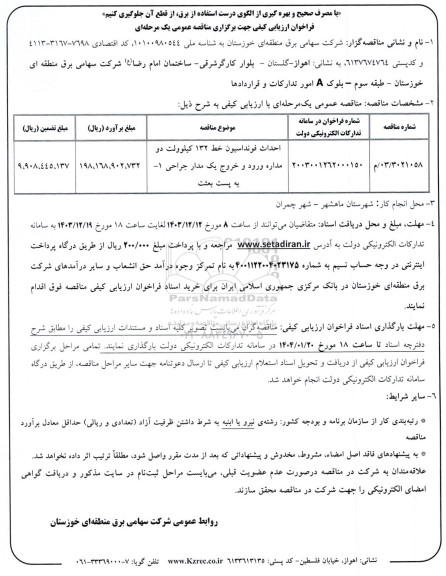 «با مصرف صحیح و بهره گیری از الگوی درست استفاده از برق، از قطع آن جلوگیری کنیم»
فراخوان ارزیابی کیفی جهت برگزاری مناقصه عمومی یک مرحله‌ای
۱- نام و نشانی مناقصه‌گزار: شرکت سهامی برق منطقه‌ای خوزستان به شناسه ملی ۱۰۱۰۰۹۸۰۵۴۴، کد اقتصادی ۷۶۹۸-۳۱۶۷-۴۱۱۳
و کدپستی ۶۱۳۷۶۷۴۷۶۴، به نشانی: اهواز-گلستان - بلوار کارگرشرقی- ساختمان امام رضا(ع) شرکت سهامی برق منطقه ای
خوزستان - طبقه سوم - بلوک A امور تدارکات و قراردادها
۲- مشخصات مناقصه: مناقصه عمومی یک‌مرحله‌ای با ارزیابی کیفی به شرح ذیل:
شماره مناقصه | شماره فراخوان در سامانه تدارکات الکترونیکی دولت | موضوع مناقصه | مبلغ برآورد (ریال) | مبلغ تضمین (ریال)
۰۳/۳۰۲۱۰۵۸/م | ۲۰۰۳۰۰۱۲۶۲۰۰۰۱۵۰ | احداث فونداسیون خط ۱۳۲ کیلوولت دو مداره ورود و خروج یک مدار جراحی ۱- به پست بعثت | ۱۹۸,۱۶۸,۹۰۲,۷۳۲ | ۹,۹۰۸,۴۴۵,۱۳۷
۳- محل انجام کار: شهرستان ماهشهر - شهر چمران
۴- مهلت، مبلغ و محل دریافت اسناد: متقاضیان می‌توانند از ساعت ۸ مورخ ۱۴۰۳/۱۲/۱۲ لغایت ساعت ۱۸ مورخ ۱۴۰۳/۱۲/۱۹ به سامانه
تدارکات الکترونیکی دولت به آدرس www.setadiran.ir مراجعه و با پرداخت مبلغ ۲۰۰/۰۰۰ ریال از طریق درگاه پرداخت
اینترنتی در وجه حساب نسیم به شماره ۴۰۰۱۱۲۲۰۰۴۰۲۳۱۷۵ به نام تمرکز وجوه درآمد حق انشعاب و سایر درآمدهای شرکت
برق منطقه‌ای خوزستان در بانک مرکزی جمهوری اسلامی ایران برای خرید اسناد فراخوان ارزیابی کیفی مناقصه فوق اقدام
نمایند.
۵- مهلت بارگذاری اسناد فراخوان ارزیابی کیفی: مناقصه‌گران می‌بایست تصویر کلیه اسناد و مستندات ارزیابی کیفی را مطابق شرح
دفترچه اسناد تا ساعت ۱۸ مورخ ۱۴۰۴/۰۱/۲۰ در سامانه تدارکات الکترونیکی دولت بارگذاری نمایند. تمامی مراحل برگزاری
فراخوان ارزیابی کیفی از دریافت و تحویل اسناد استعلام ارزیابی کیفی تا ارسال دعوتنامه جهت سایر مراحل مناقصه، از طریق درگاه
سامانه تدارکات الکترونیکی دولت انجام خواهد شد.
۶- سایر شرایط:
* رتبه‌بندی کار از سازمان برنامه و بودجه کشور: رشته‌ی نیرو یا ابنیه به شرط داشتن ظرفیت آزاد (تعدادی و ریالی) حداقل معادل برآورد
مناقصه
* به پیشنهادهای فاقد اصل امضاء، مشروط، مخدوش و پیشنهاداتی که بعد از مدت مقرر واصل شود، مطلقاً ترتیب اثر داده نخواهد شد.
علاقه‌مندان به شرکت در مناقصه درصورت عدم عضویت قبلی، می‌بایست مراحل ثبت‌نام در سایت مذکور و دریافت گواهی
امضای الکترونیکی را جهت شرکت در مناقصه محقق سازند.
روابط عمومی شرکت سهامی برق منطقه‌ای خوزستان
نشانی: اهواز، خیابان فلسطین- کد پستی: ۶۱۳۳۶۱۳۱۳۵ www.Kzrec.co.ir تلفن گویا: ۷-۳۳۳۶۹۰۰۰-۰۶۱